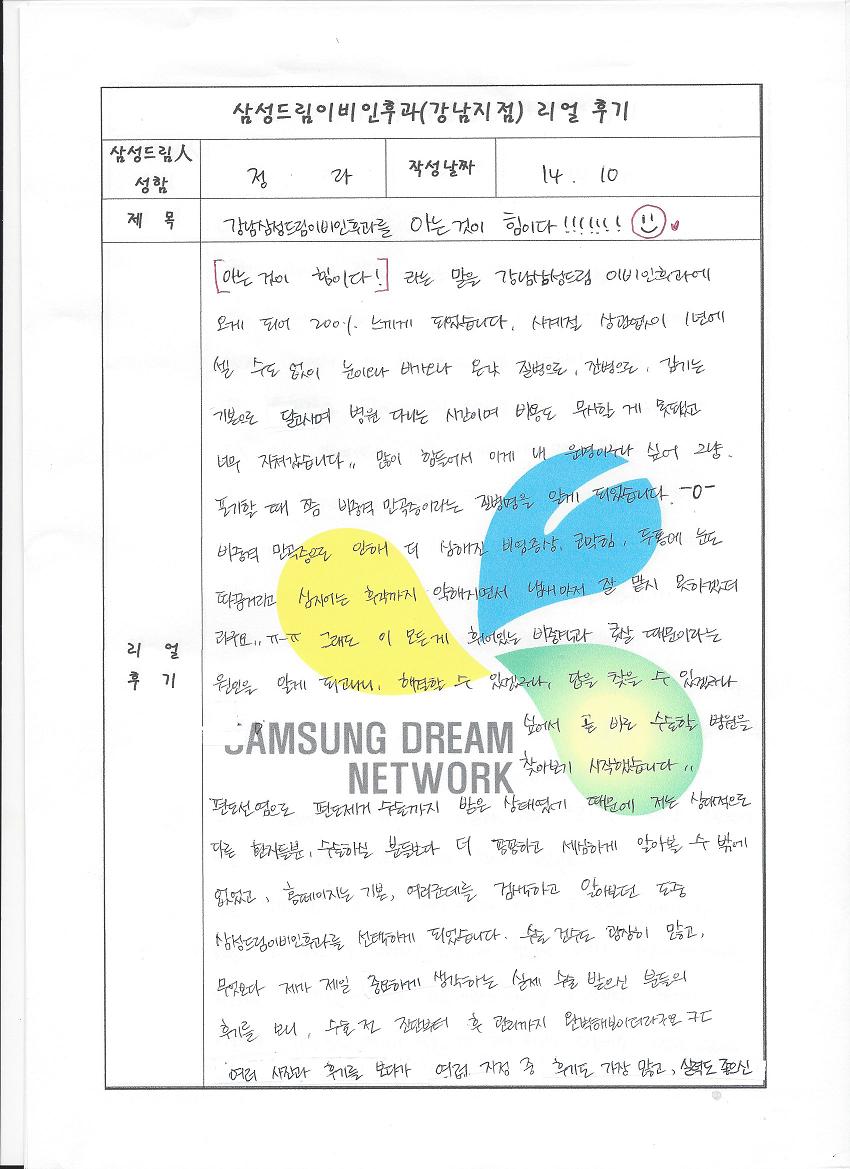 삼성드림이비인후과(강남지점) 리얼 후기
삼성드림人 성함
정 라
작성날짜
14. 10
제 목
강남삼성드림이비인후과를 아는것이 힘이다!!!!!!!
리 얼
후 기
[아는것이 힘이다!] 라는 말을 강남삼성드림 이비인후과에
오게 되어 200%. 느끼게 되었습니다. 사계절 상관없이 1년에
셀 수도 없이 눈이오나 비가오나 온갖 질병으로, 잔병으로, 감기는
기본으로 달고살며 병원 다니는 시간이며 비용도 무시할 게 못됐고
너무 지쳐갔습니다,, 많이 힘들어서 이게 내 운명이구나 싶어 그냥.
포기할 때 쯤 비중격 만곡증이라는 질병명을 알게 되었습니다. -0-
비중격 만곡증으로 인해 더 심해진 비염증상, 코막힘, 두통에 눈도
따끔거리고 심지어는 후각까지 약해지면서 냄새마저 잘 맡지 못하겠더
라구요.. ㅠ-ㅠ 그래도 이 모든게 휘어있는 비중격과 콧살 때문이라는
원인을 알게 되고나니, 해결할 수 있겠구나, 답을 찾을 수 있겠구나
싶어서 곧 바로 수술할 병원을
찾아보기 시작했습니다,,
SAMSUNG DREAM
NETWORK
편도선염으로 편도제거 수술까지 받은 상태였기 때문에 저는 상대적으로
다른 환자들분, 수술하실 분들보다 더 꼼꼼하고 세심하게 알아볼 수 밖에
없었고, 홈페이지는 기본, 여러군데를 검색하고 알아보던 도중
삼성드림이비인후과를 선택하게 되었습니다. 수술 건수도 굉장히 많고,
무엇보다 제가 제일 중요하게 생각하는 실제 수술 받으신 분들의
후기를 보니, 수술 전 진단부터 후 관리까지 완벽해보이더라구요 ㅋㄷ
여러 사진과 후기를 보다가 여러 지점 중 후기도 가장 많고, 실력도 좋으신